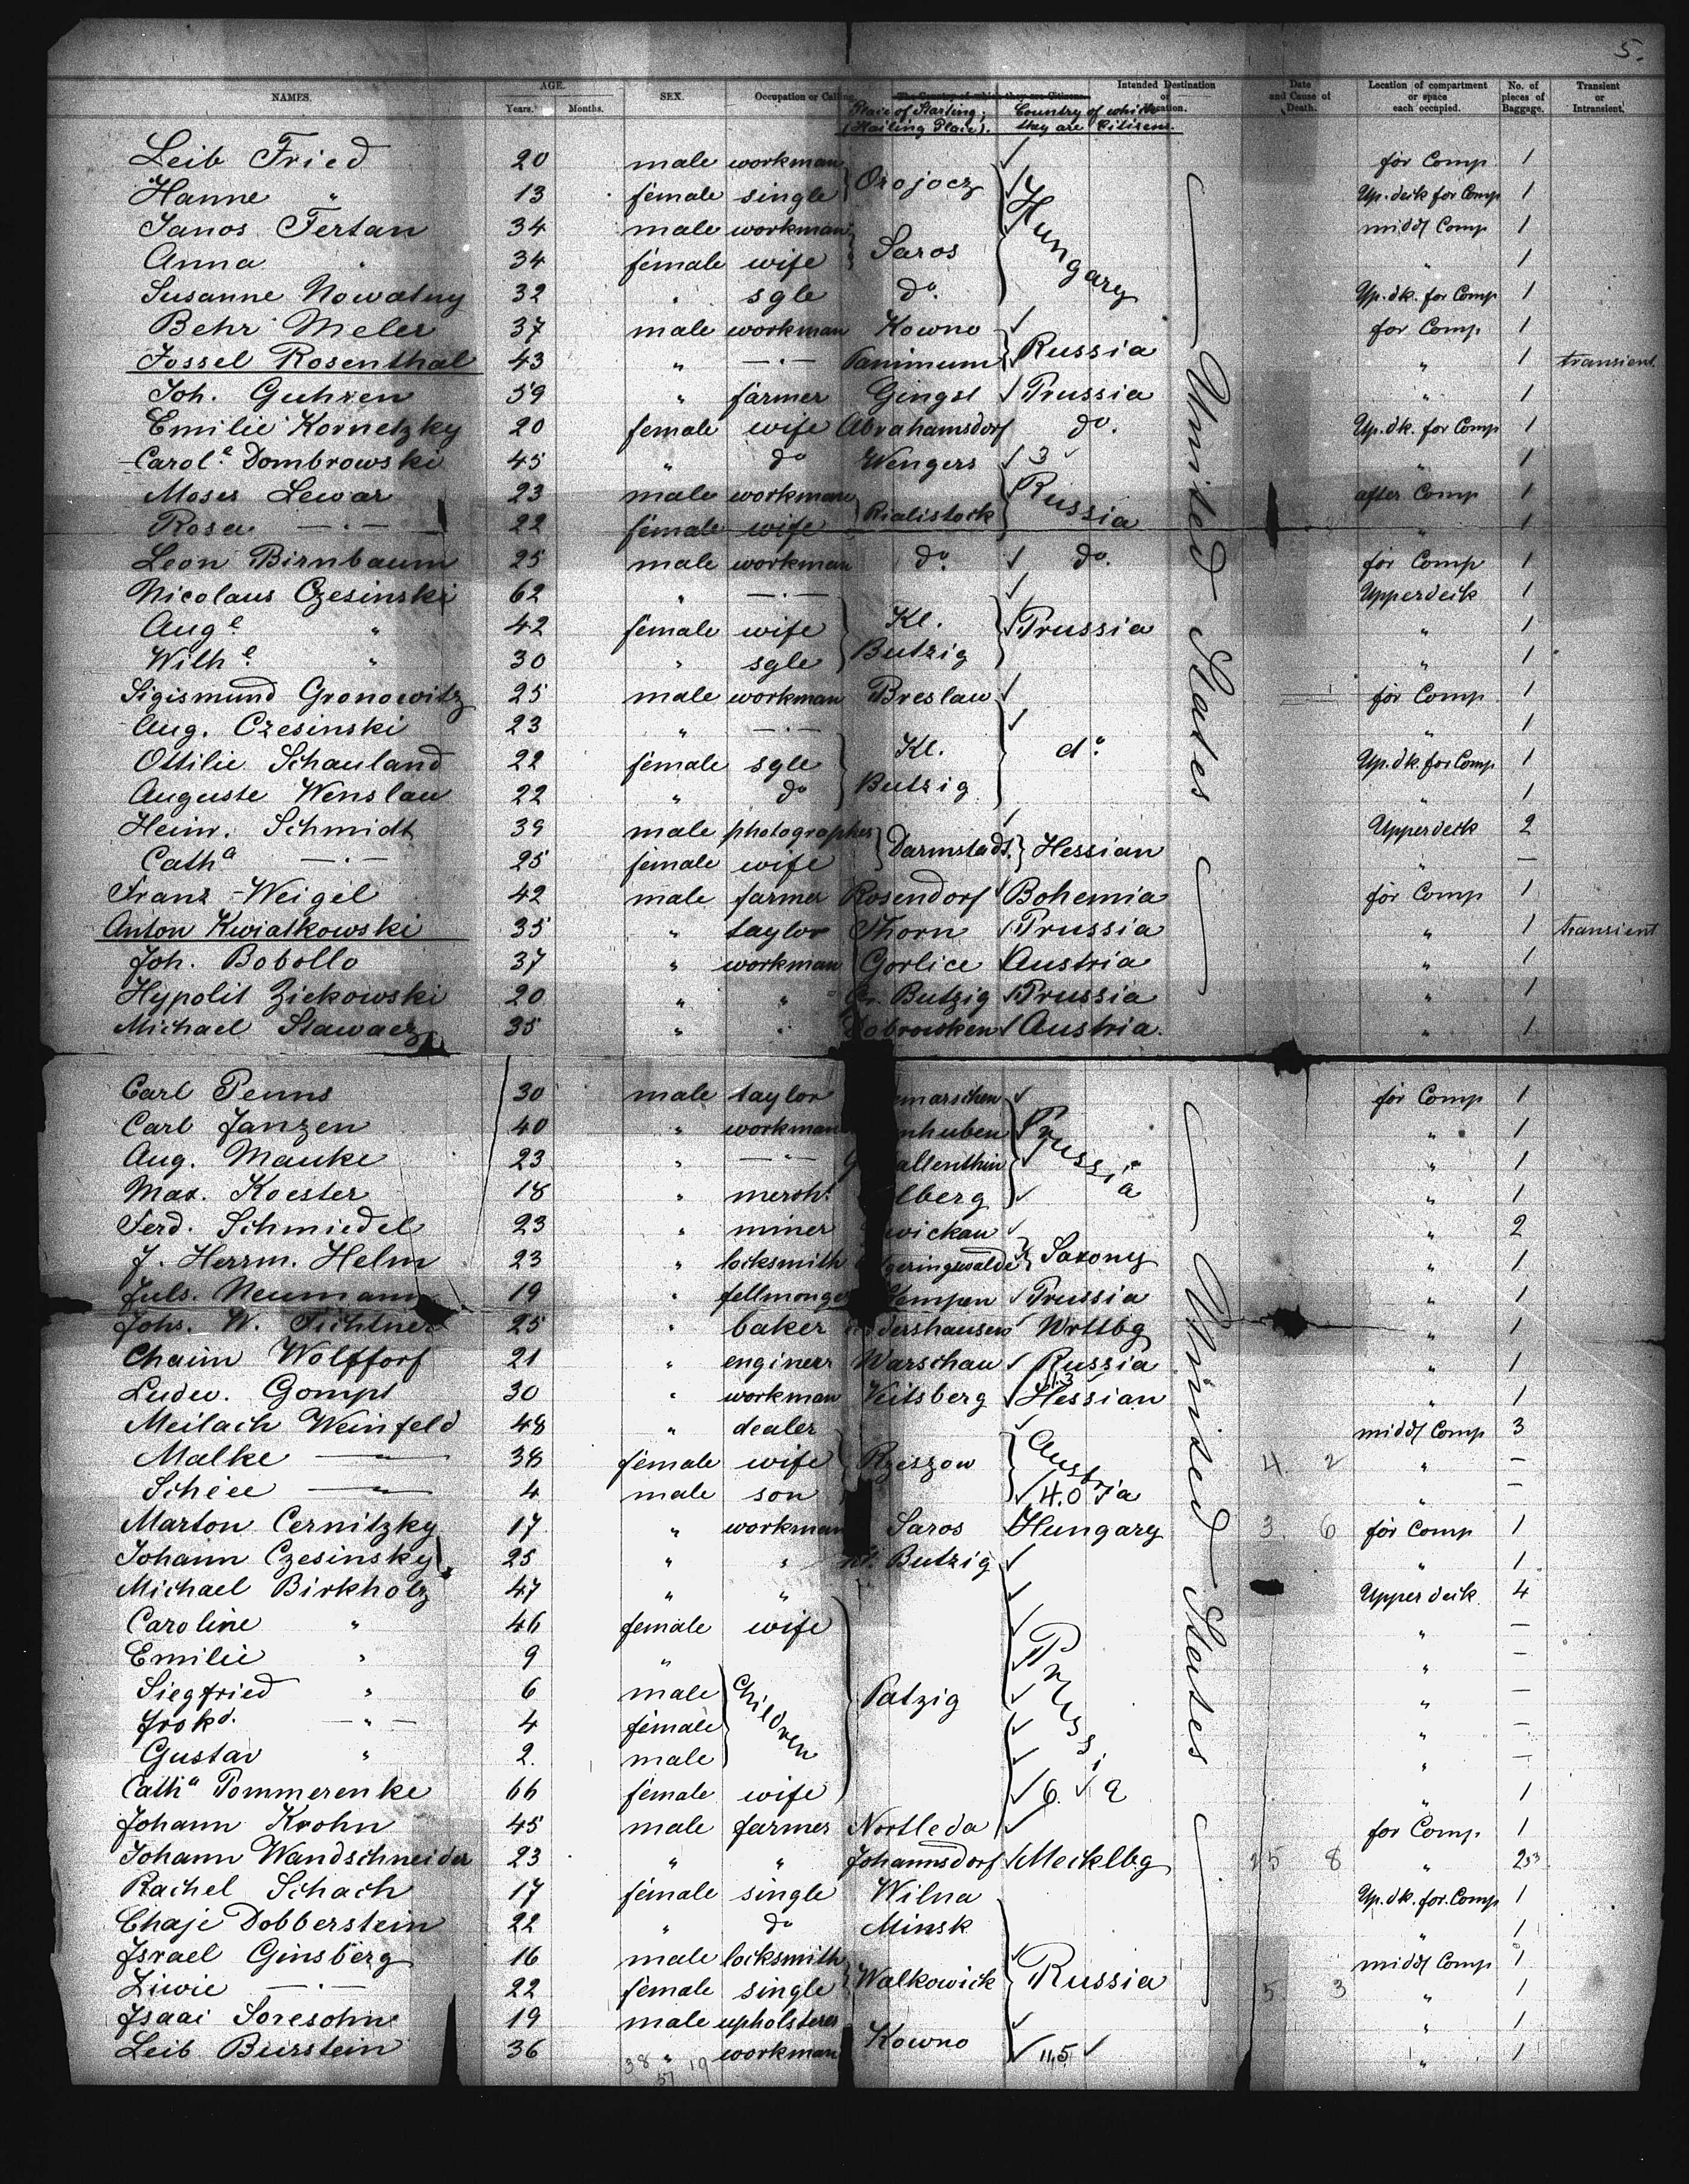 5.
NAMES. AGE. Years. Months. SEX. Occupation or Calling The Country of which they are Citizens. Intended Destination or Location. Date and Cause of Death. Location of compartment or space each occupied. No. of pieces of Baggage. Transient or Intransient.
Place of Starting; (Hailing Place). Country of which they are Citizens.
Leib Fried 20 male workman for Comp 1
Hanne " 13 female single Orojocz Up. deck for Comp 1
Janos Fertan 34 male workman Hungary midd Comp 1
Anna " 34 female wife Saros " 1
Susanne Nowatny 32 " sgle do. Up. dk. for Comp 1
Behr Meler 37 male workman Kowno for Comp 1
Jossel Rosenthal 43 " —"— Russia " 1 transient
Joh. Guhren 59 " farmer Gingst Prussia " 1
Emilie Kornetzky 20 female wife Abrahamsdorf do. Up. dk. for Comp 1
Carole Dombrowski 45 " do Wengers 3 " 1
Moses Lewar 23 male workman Russia after Comp 1
Rosa —"— 22 female wife Bialistock " 1
Leon Birnbaum 25 male workman do. do. for Comp 1
Nicolaus Czesinski 62 " —"— Upperdeck 1
Auge. " 42 female wife Kl. Prussia " 1
Wilhe. " 30 " sgle Butzig " 1
Sigismund Gronowitz 25 male workman Breslau for Comp 1
Aug. Czesinski 23 " —"— " 1
Ottilie Schauland 22 female sgle Kl. do. Up. dk. for Comp 1
Auguste Wenslau 22 " do Butzig " 1
Heinr. Schmidt 39 male photographer Upperdeck 2
Catha —"— 25 female wife Darmstadt. Hessian " —
Franz Weigel 42 male farmer Rosendorf Bohemia for Comp 1
Anton Kwiatkowski 35 " taylor Thorn Prussia " 1 transient
Joh. Bobollo 37 " workman Gorlice Austria " 1
Hypolit Zickowski 20 " " Butzig Prussia " 1
Michael Slawacz 35 " " Dobrowken Austria. " 1
United States
Carl Penns 30 male taylor for Comp 1
Carl Janzen 40 " workman Prussia " 1
Aug. Mauke 23 " —"— " 1
Max. Koester 18 " mercht. " 1
Ferd. Schmiedel 23 " miner " 2
J. Herrm. Helm 23 " locksmith geringwalde Saxony " 1
Juls. Neumann 19 " fellmonger Kempen Prussia " 1
Johs. W. Fichtner 25 " baker dershausen Wrttbg " 1
Chaim Wolfforf 21 " enginerr Warschau Russia " 1
Ludw. Gompf 30 " workman Veitsberg 1.3 Hessian " 1
Meilach Weinfeld 48 " dealer midd Comp 3
Malke —"— 38 female wife Rzeszow Austria 4. 2 " —
Scheee —"— 4 male son 4.0 " —
Marton Cernitzky 17 " workman Saros Hungary 3. 6 for Comp 1
Johann Czesinsky 25 " " Butzig " 1
Michael Birkholz 47 " " Upper deck 4
Caroline " 46 female wife " —
Emilie " 9 " " —
Siegfried " 6 male Children Patzig Prussia " —
—"— 4 female " —
Gustav " 2. male " —
Catha Pommerenke 66 female wife 6. " 1
Johann Krohn 45 male farmer Nortleda for Comp. 1
Johann Wandschneider 23 " " Johannsdorf Mecklbg 25 8 "
Rachel Schach 17 female single Wilna Up. dk. for. Comp 1
Chaje Dobberstein 22 " do Minsk " 1
Israel Ginsberg 16 male locksmith midd Comp 1
Ziwie —"— 22 female single Walkowick Russia 5. 3 " 1
Isaai Soresohn 19 male upholsterer " 1
Leib Burstein 36 " workman Kowno 11.5 " 1
United States
38 19
57